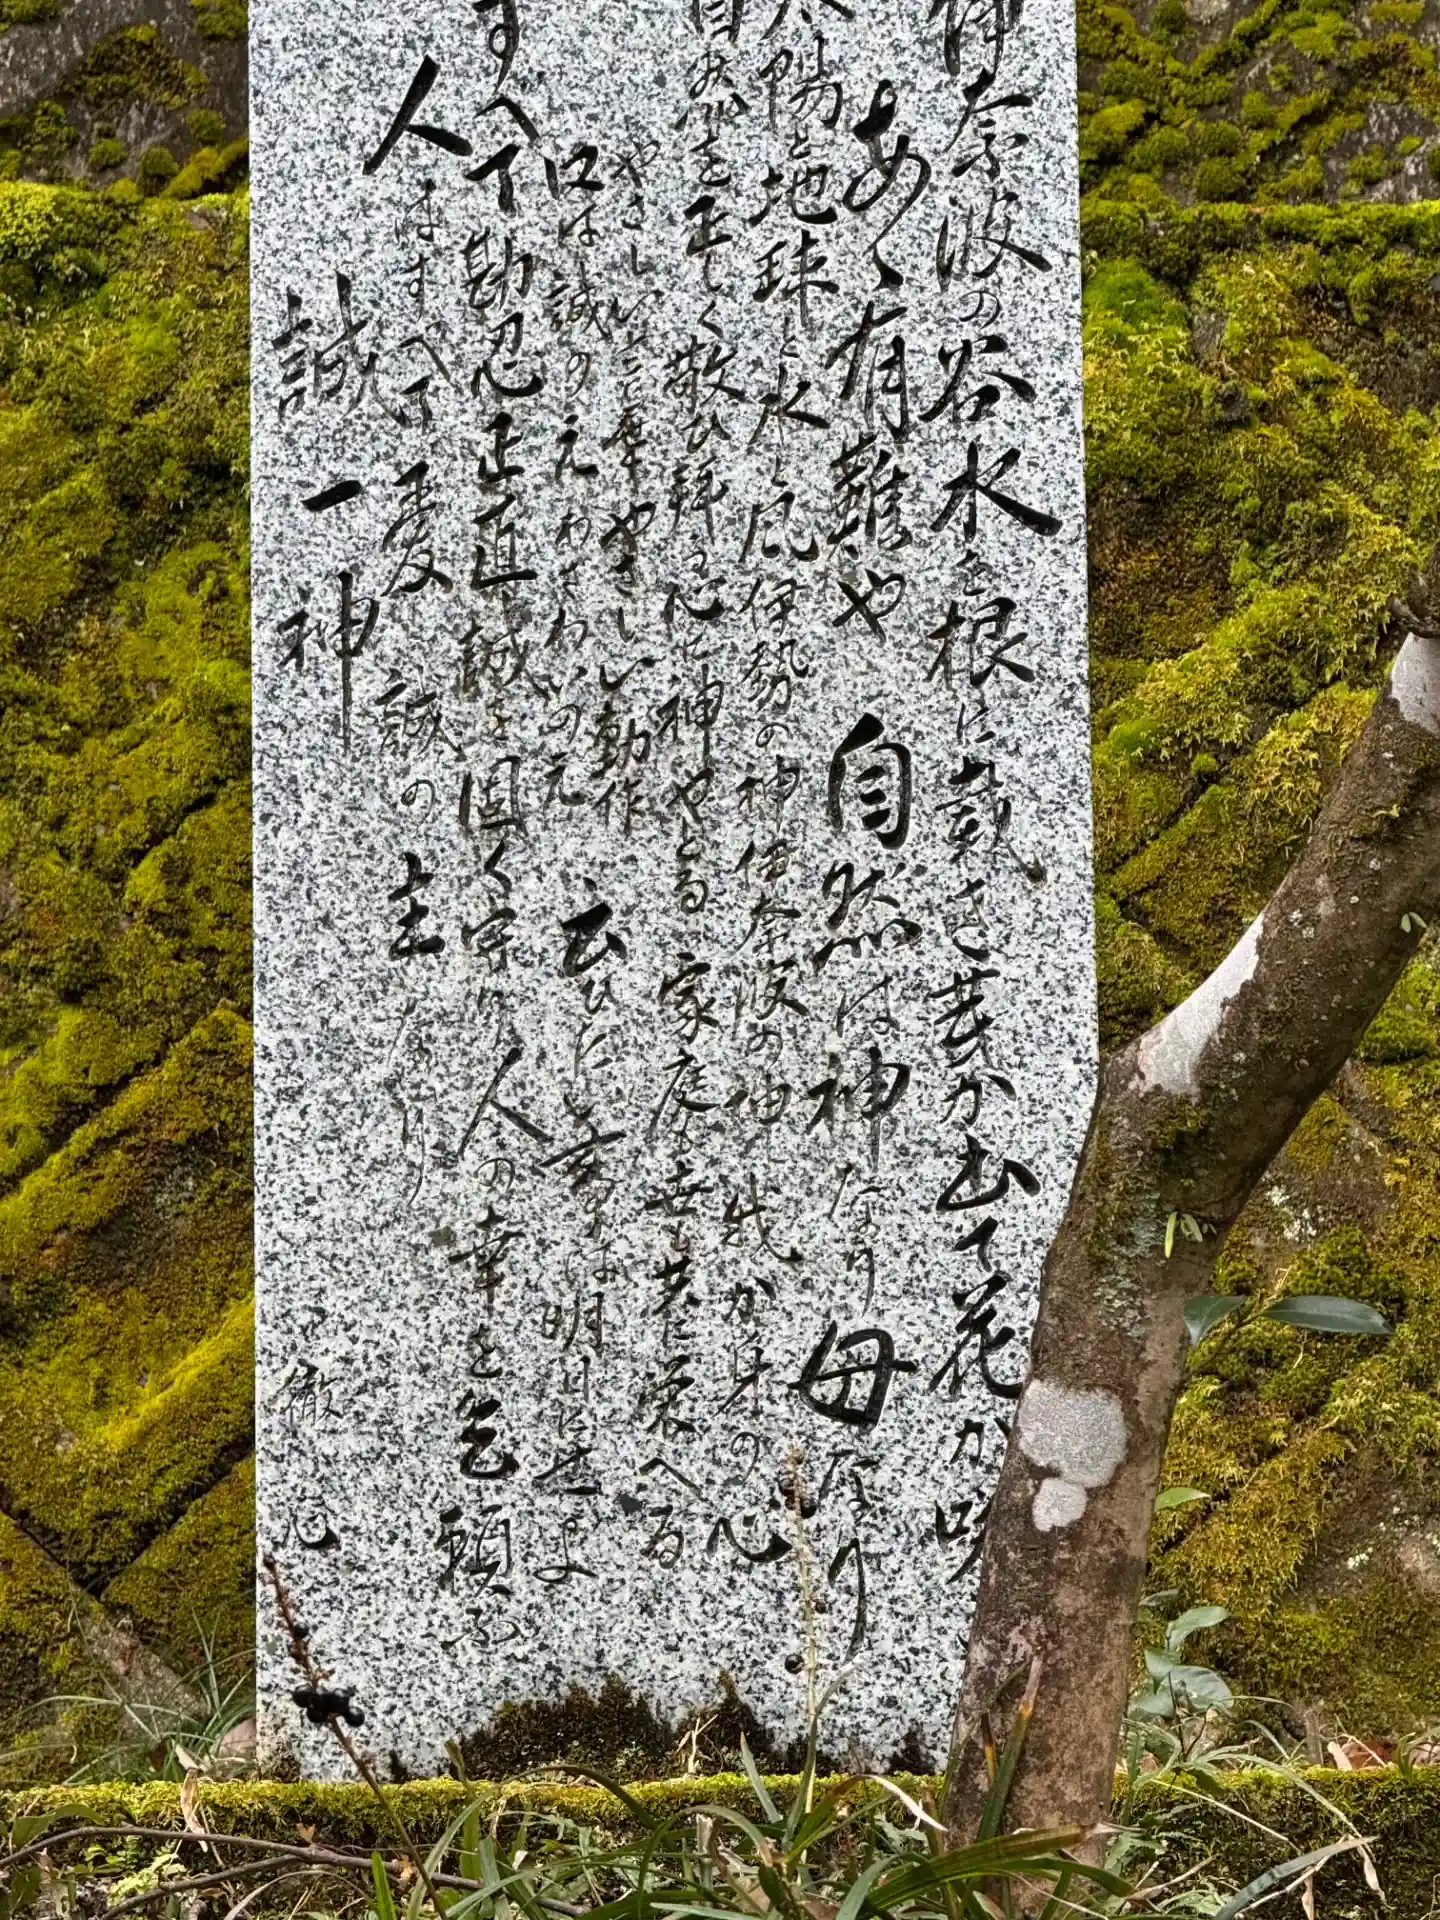 伊奈波の谷水を根に戴き芽か出て花か咲
あゝ有難や 自然は神なり 母なり
太陽と地球と水と風伊勢の神伊奈波の神 我か身の心
を正しく敬ひ拝る心に神やとる 家庭も世も共に栄へる
やさしい言葉 やさしい動作
口は誠の元わざわいの元 云ひたい事は明日に
すべて勘忍正直誠を固く守り人の幸を乞願ふ
人はすべて愛 誠の主なり
誠一神
徹心